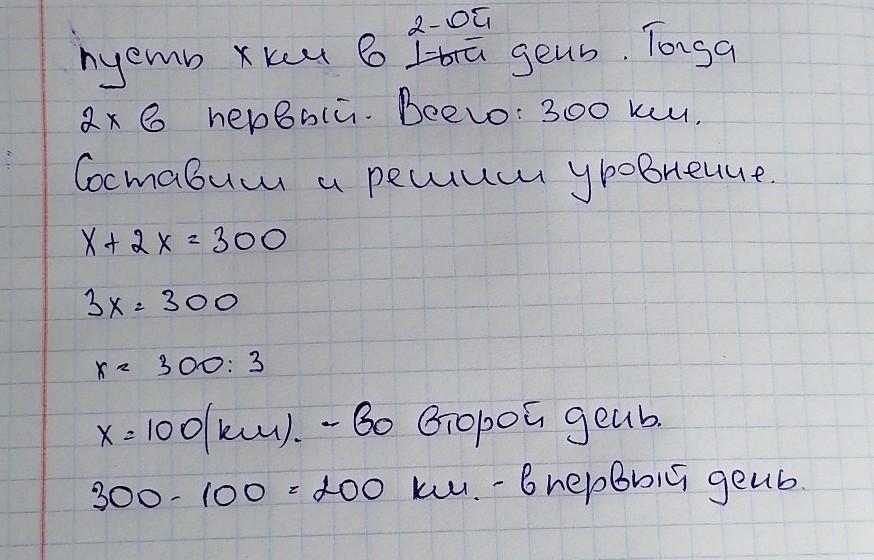 2-ой
пусть x км в 1-ый день. Тогда
2x в первый. Всего: 300 км.
Составим и решим уровнение.
x + 2x = 300
3x = 300
x = 300 : 3
x = 100 (км). - во второй день.
300 - 100 = 200 км. - в первый день.